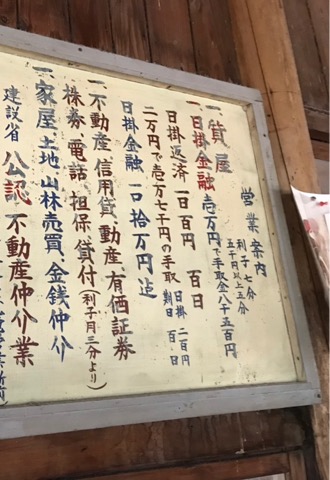 営業案内
一、質屋 利子 七分
五千円以上五分
一、日掛金融 壱万円で手取金八千五百円
日掛返済 一日百円 百日
二万円で壱万七千円の手取 日掛 二百円
期日 百日
日掛金融 一口拾万円迠
一、不動産、信用貸、動産、有価証券
株券、電話、担保、貸付(利子月三分より)
一、家屋、土地、山林売買、金銭仲介
建設省 公認 不動産仲介業